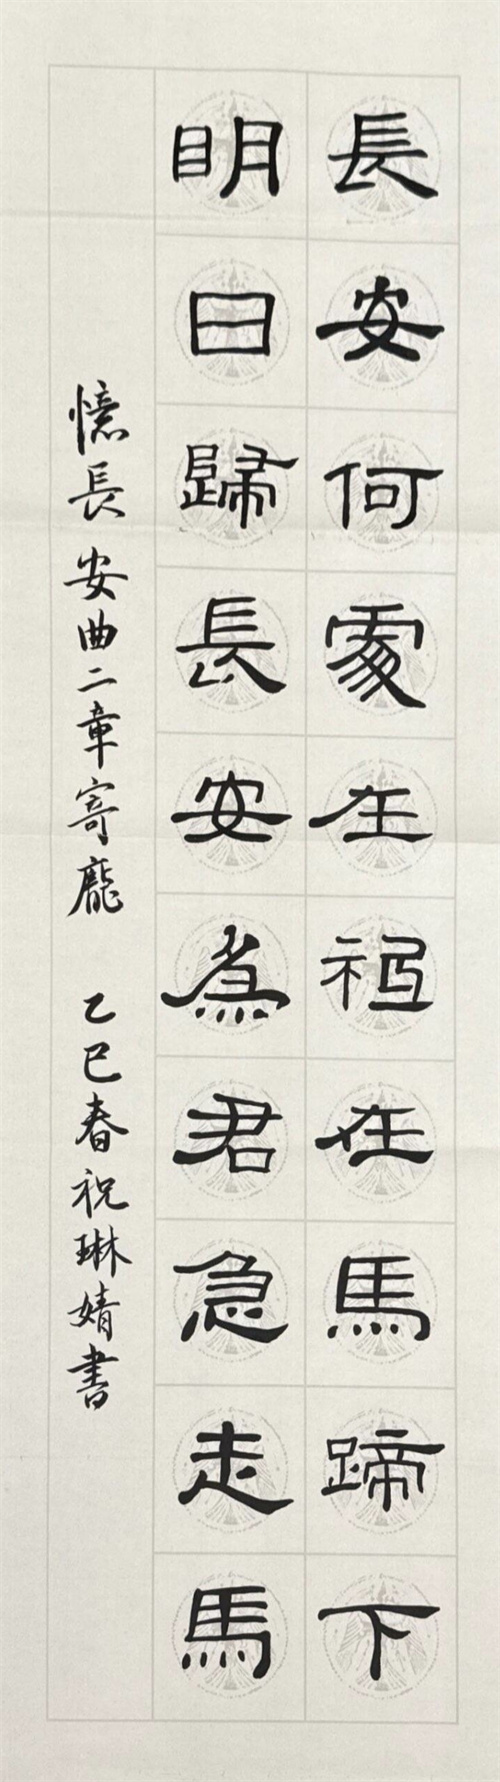 長安何處在祗在馬蹄下
明日歸長安為君急走馬
憶長安曲二章寄龐 乙巳春祝琳婧書